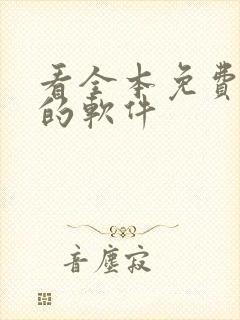 看全本免費
的軟件
音塵寂